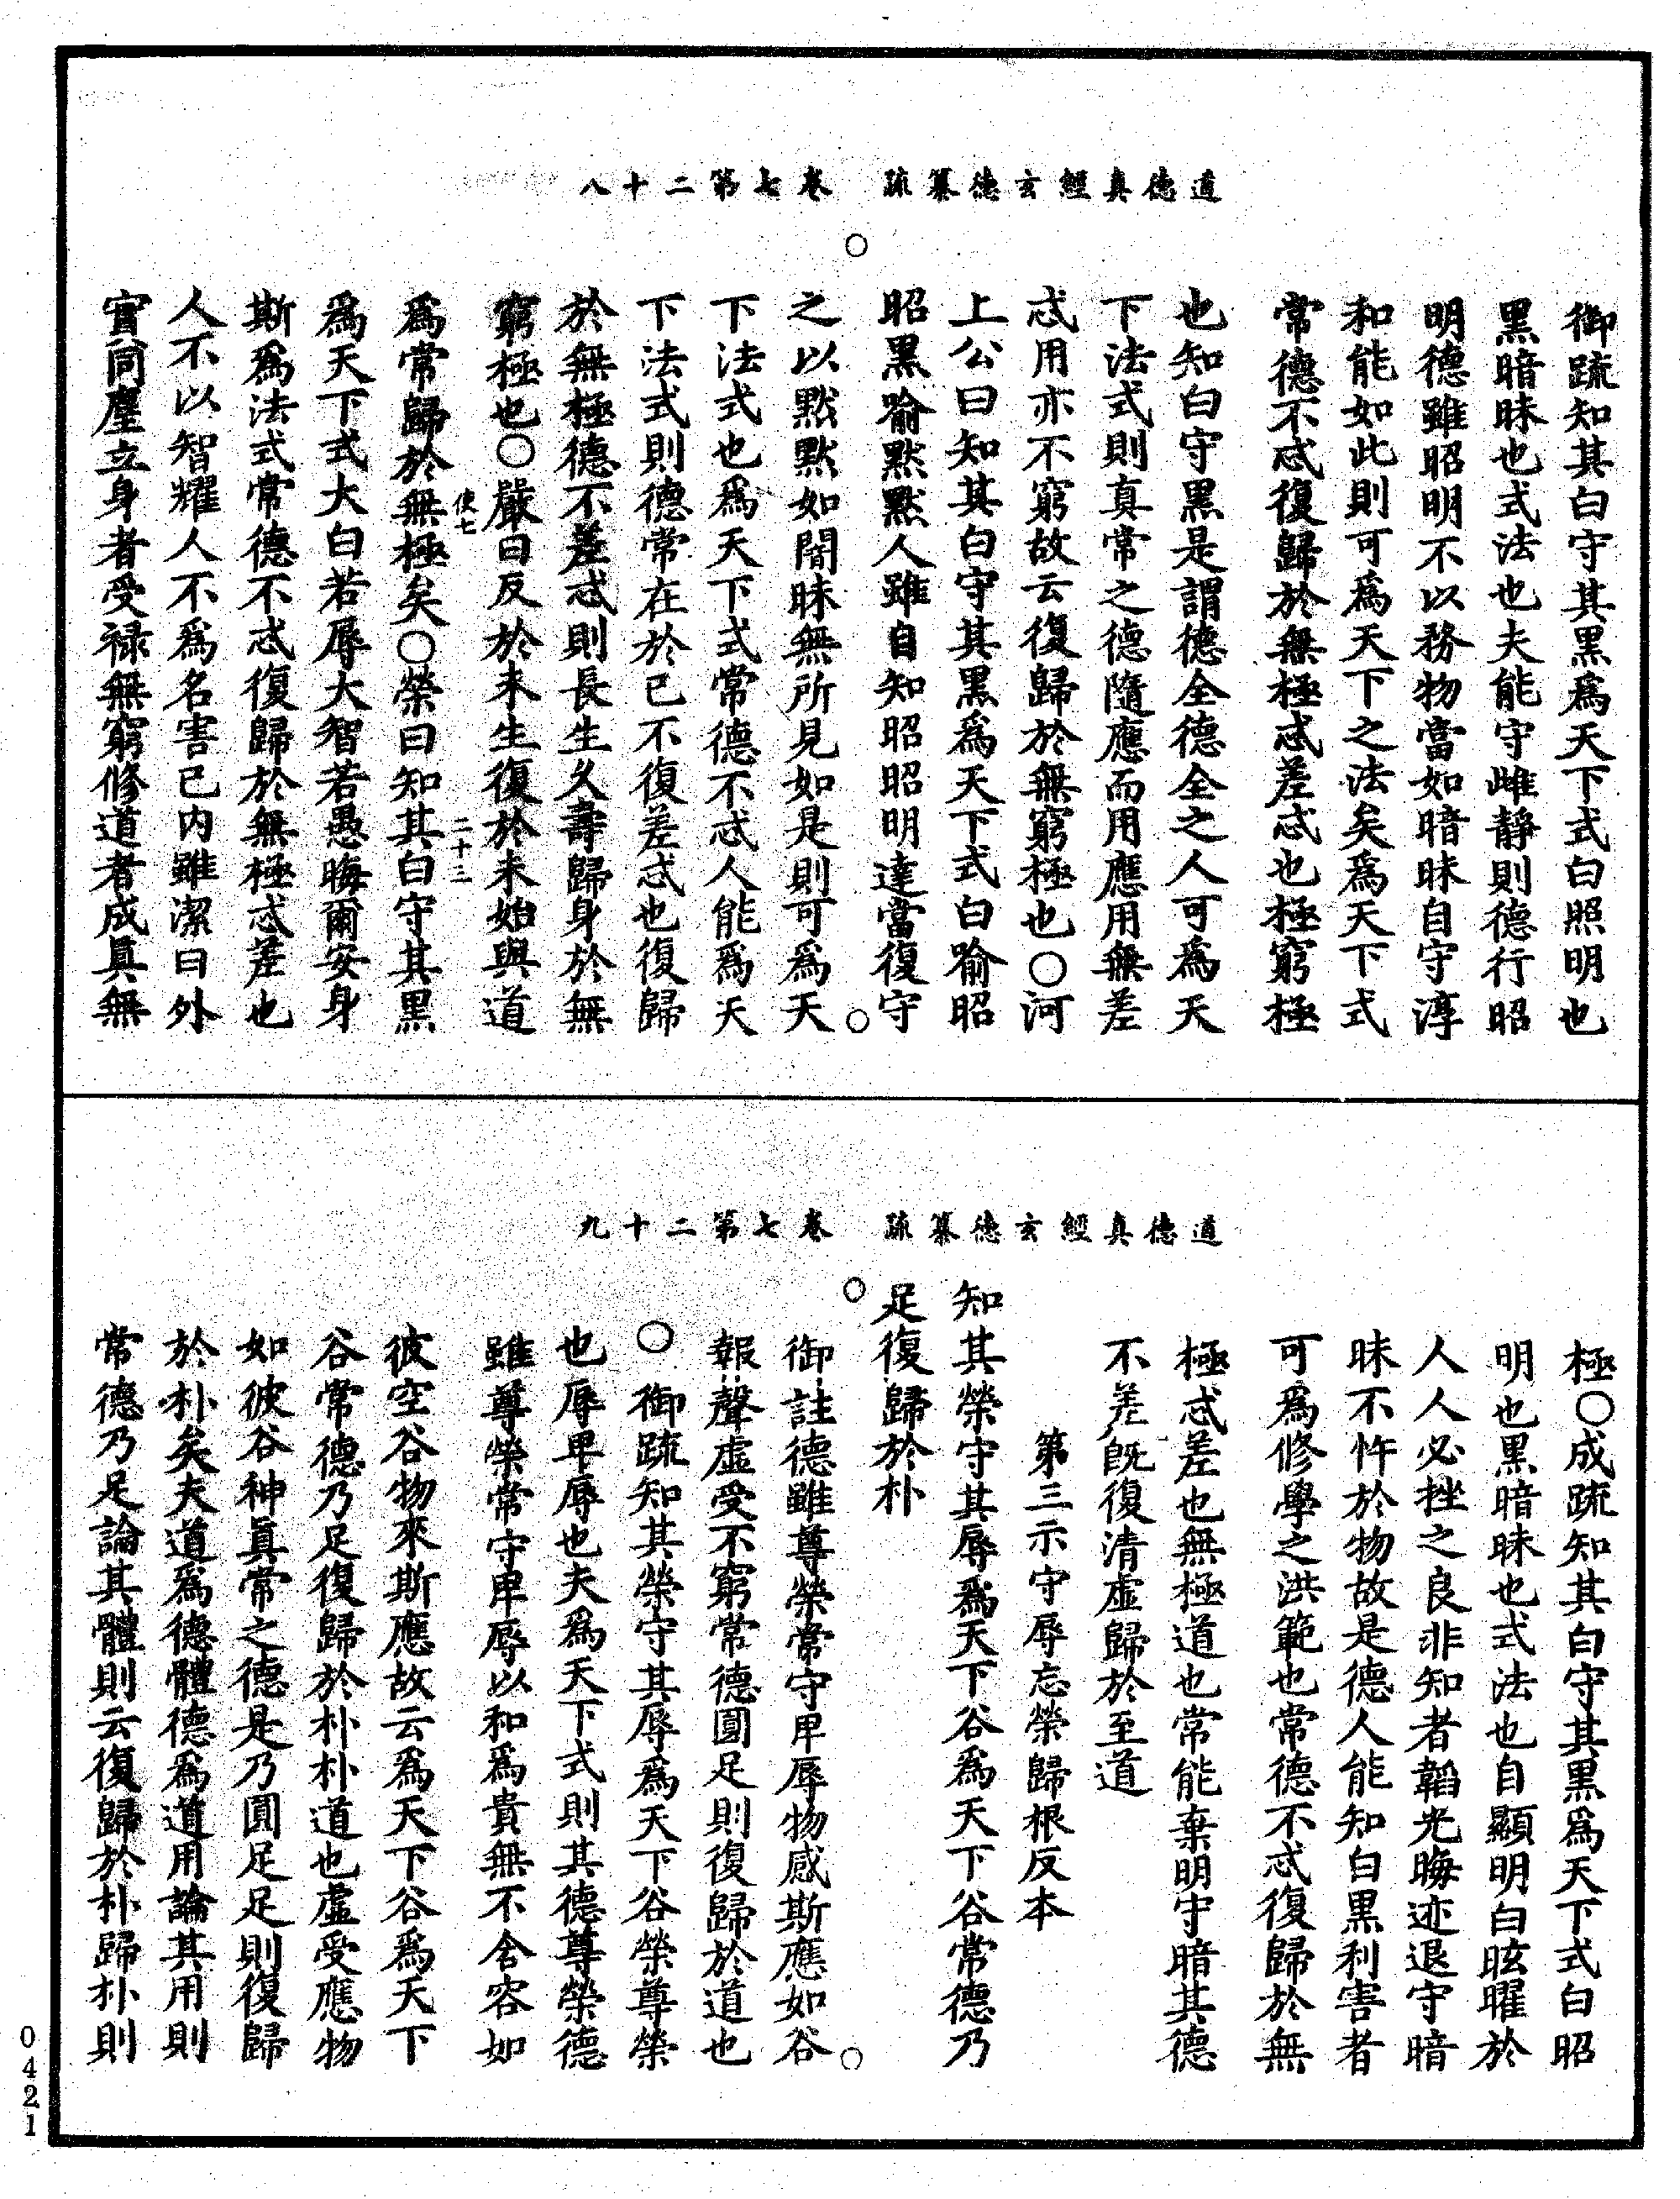 道德真經玄德纂疏　卷七第二十八
御疏知其白守其黑爲天下式白照明也
黑暗昧也式法也夫能守雌靜則德行昭
明德雖昭明不以務物當如暗昧自守淳
和能如此則可爲天下之法矣爲天下式
常德不忒復歸於無極忒差忒也極窮極
也知白守黑是謂德全德全之人可爲天
下法式則真常之德隨應而用應用無差
忒用亦不窮故云復歸於無窮極也○河
上公曰知其白守其黑爲天下式白喻昭
昭黑喻默默人雖自知昭昭明達當復守
之以默默如闇昧無所見如是則可爲天
下法式也爲天下式常德不忒人能爲天
下法式則德常在於己不復差忒也復歸
於無極德不差忒則長生久壽歸身於無
窮極也○嚴曰反於未生復於未始與道
使七　二十三
爲常歸於無極矣○榮曰知其白守其黑
爲天下式大白若辱大智若愚晦爾安身
斯爲法式常德不忒復歸於無極忒差也
人不以智耀人不爲名害己內雖潔白外
實同塵立身者受祿無窮修道者成真無
道德真經玄德纂疏　卷七第二十九
極○成疏知其白守其黑爲天下式白昭
明也黑暗昧也式法也自顯明白眩曜於
人人必挫之良非知者韜光晦迹退守暗
昧不忤於物故是德人能知白黑利害者
可爲修學之洪範也常德不忒復歸於無
極忒差也無極道也常能棄明守暗其德
不差既復清虛歸於至道
第三示守辱忘榮歸根反本
知其榮守其辱爲天下谷爲天下谷常德乃
足復歸於朴
御註德雖尊榮常守卑辱物感斯應如谷
報聲虛受不窮常德圓足則復歸於道也
○御疏知其榮守其辱爲天下谷榮尊榮
也辱卑辱也夫爲天下式則其德尊榮德
雖尊榮常守卑辱以和爲貴無不含容如
彼空谷物來斯應故云爲天下谷爲天下
谷常德乃足復歸於朴朴道也虛受應物
如彼谷神眞常之德是乃圓足足則復歸
於朴矣夫道爲德體德爲道用論其用則
常德乃足論其體則云復歸於朴歸朴則
0421